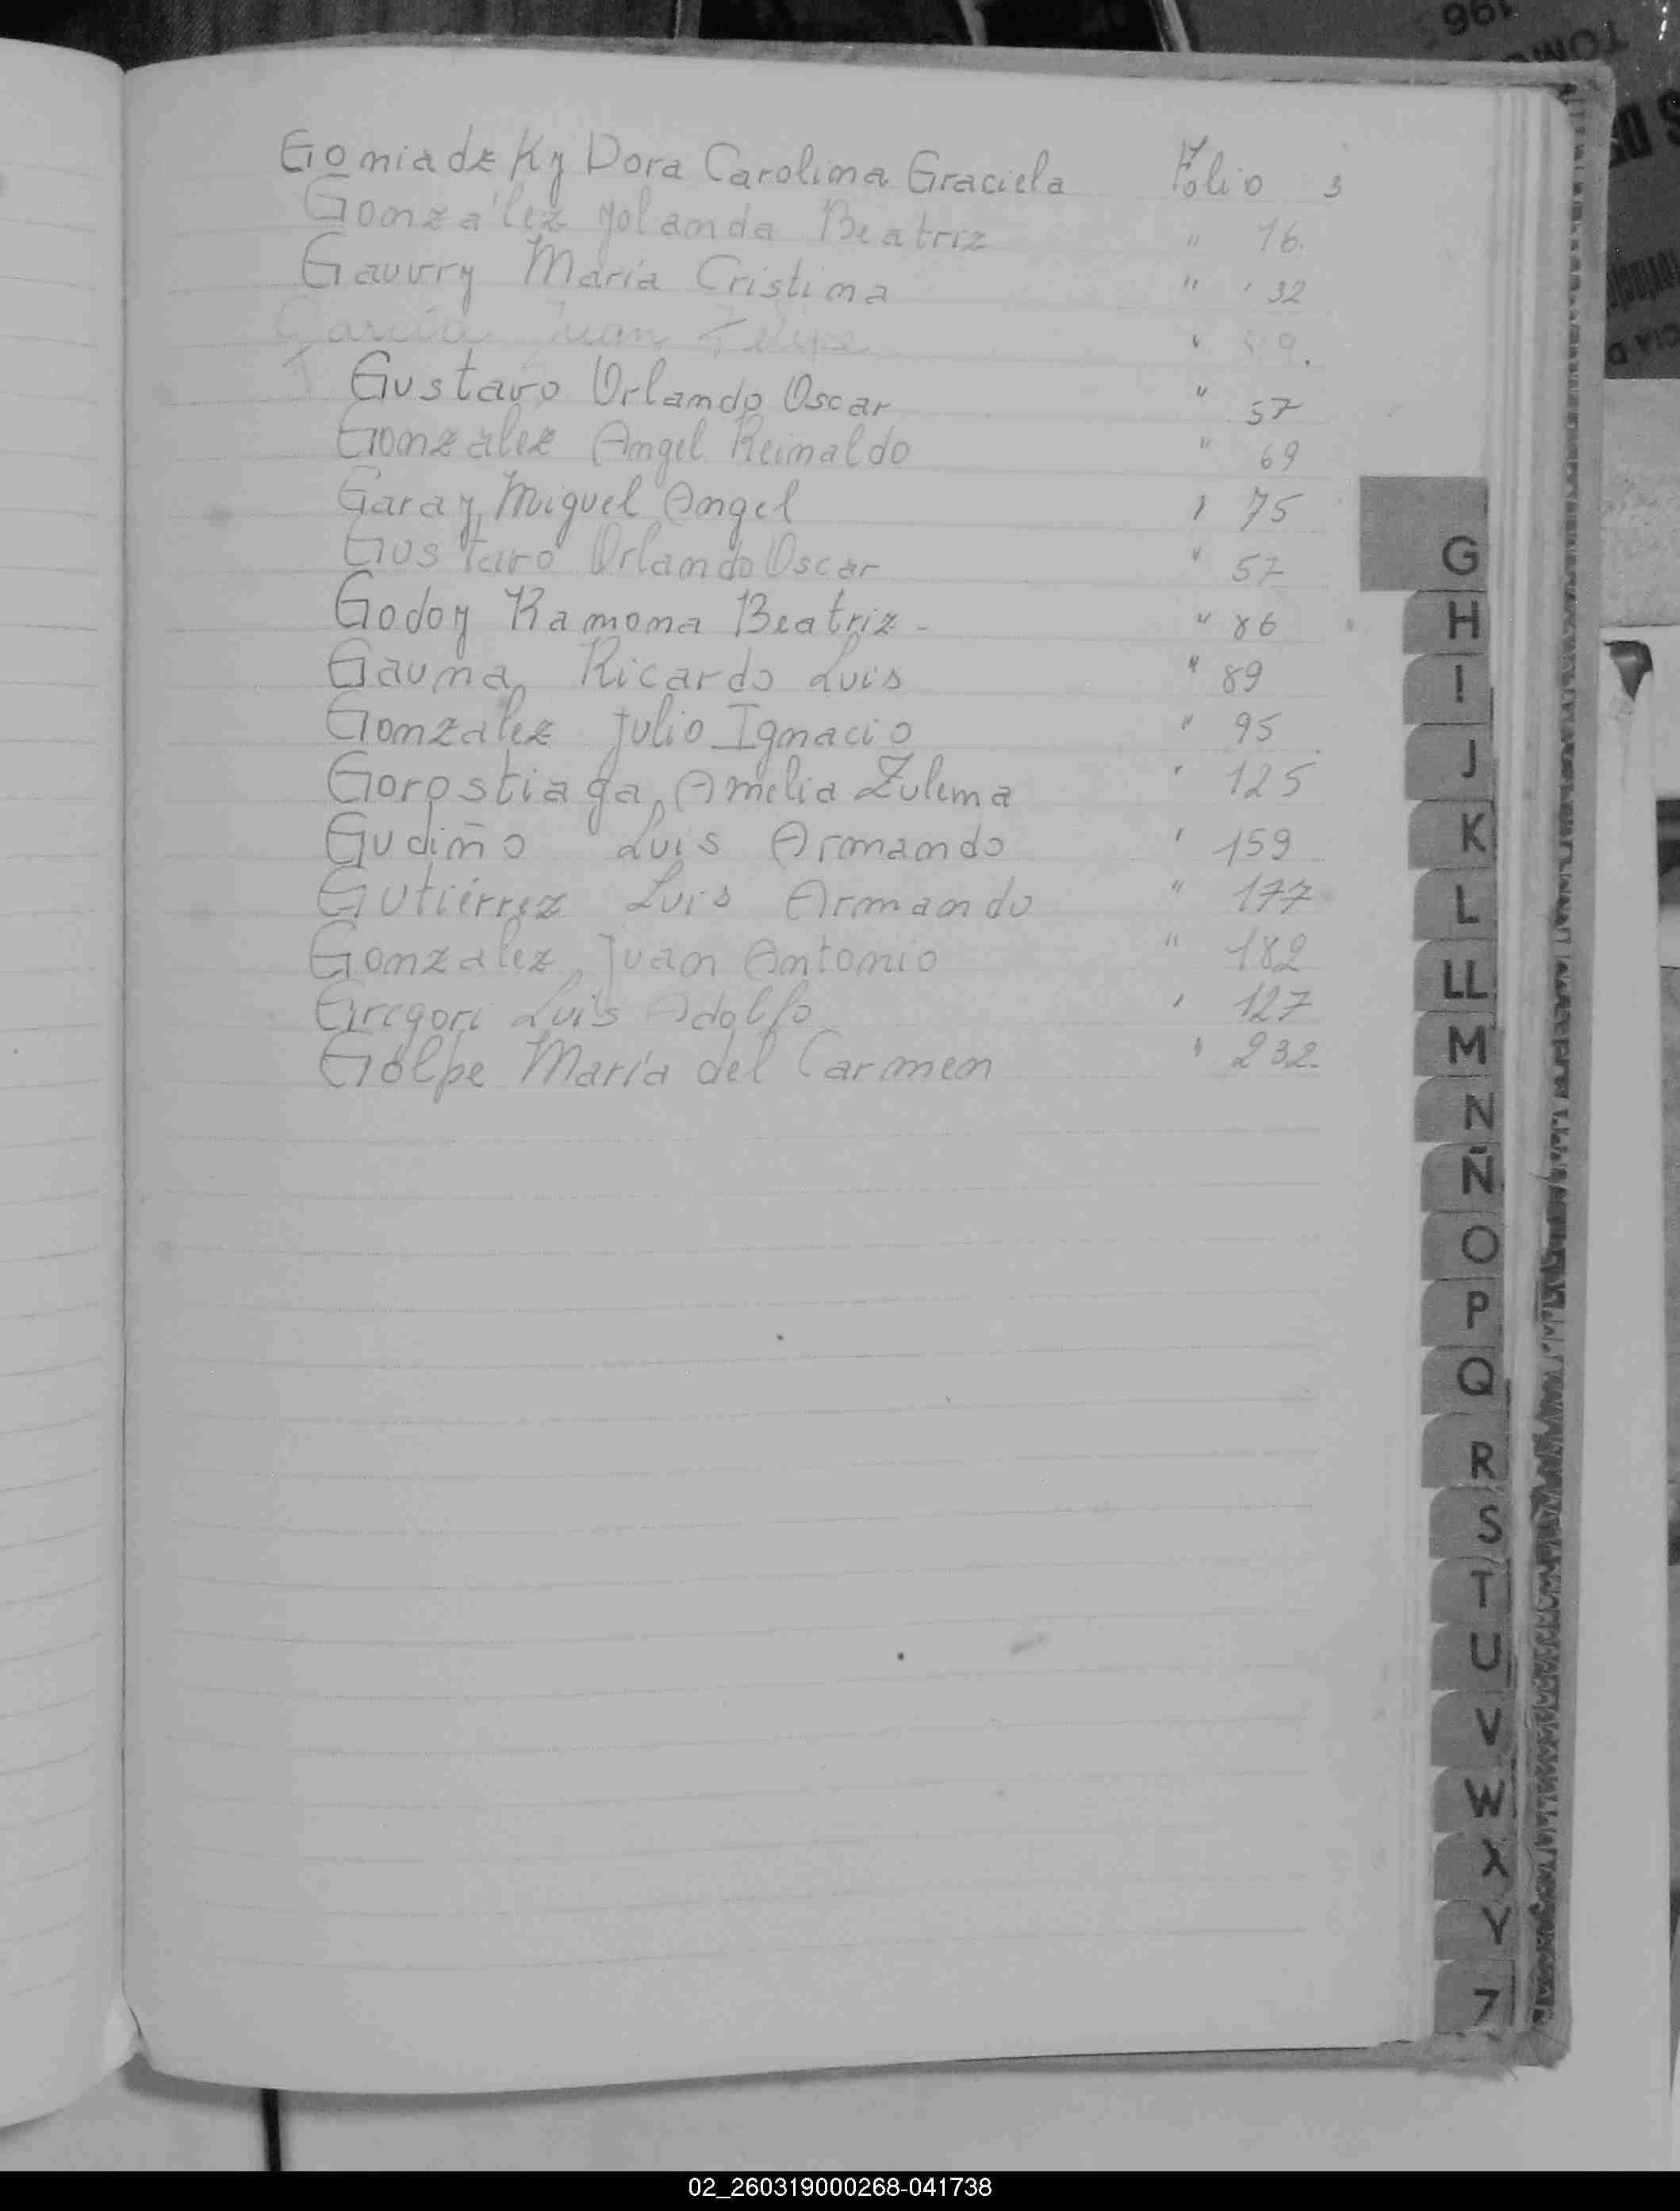 Gomiadzky Dora Carolina Graciela Folio 3
González Yolanda Beatriz " 16.
Gauvry María Cristina " 32
García Juan Felipe " 9.
Gustavo Orlando Oscar " 57
Gonzalez Angel Reinaldo " 69
Garay, Miguel Angel " 75
Gustavo Orlando Oscar " 57
Godoy Ramona Beatriz - " 86
Gauna, Ricardo Luis " 89
Gonzalez Julio Ignacio " 95
Gorostiaga, Amelia Zulema " 125
Gudiño Luis Armando " 159
Gutiérrez Luis Armando " 177
Gonzalez, Juan Antonio " 182
Gregori Luis Adolfo " 127
Golpe María del Carmen " 232.
G
H
I
J
K
L
LL
M
N
Ñ
O
P
Q
R
S
T
U
V
W
X
Y
Z
TOMO
02_260319000268-041738